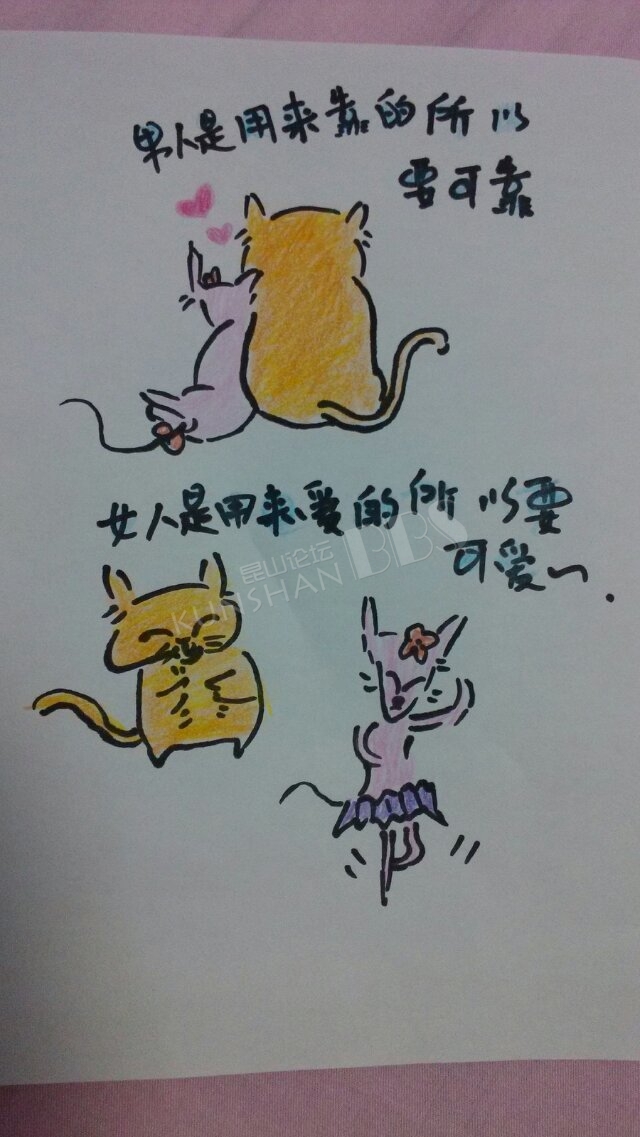 男人是用来靠的所以
要可靠
女人是用来爱的所以要
可爱~.
昆山论坛
KUNSHAN BBS